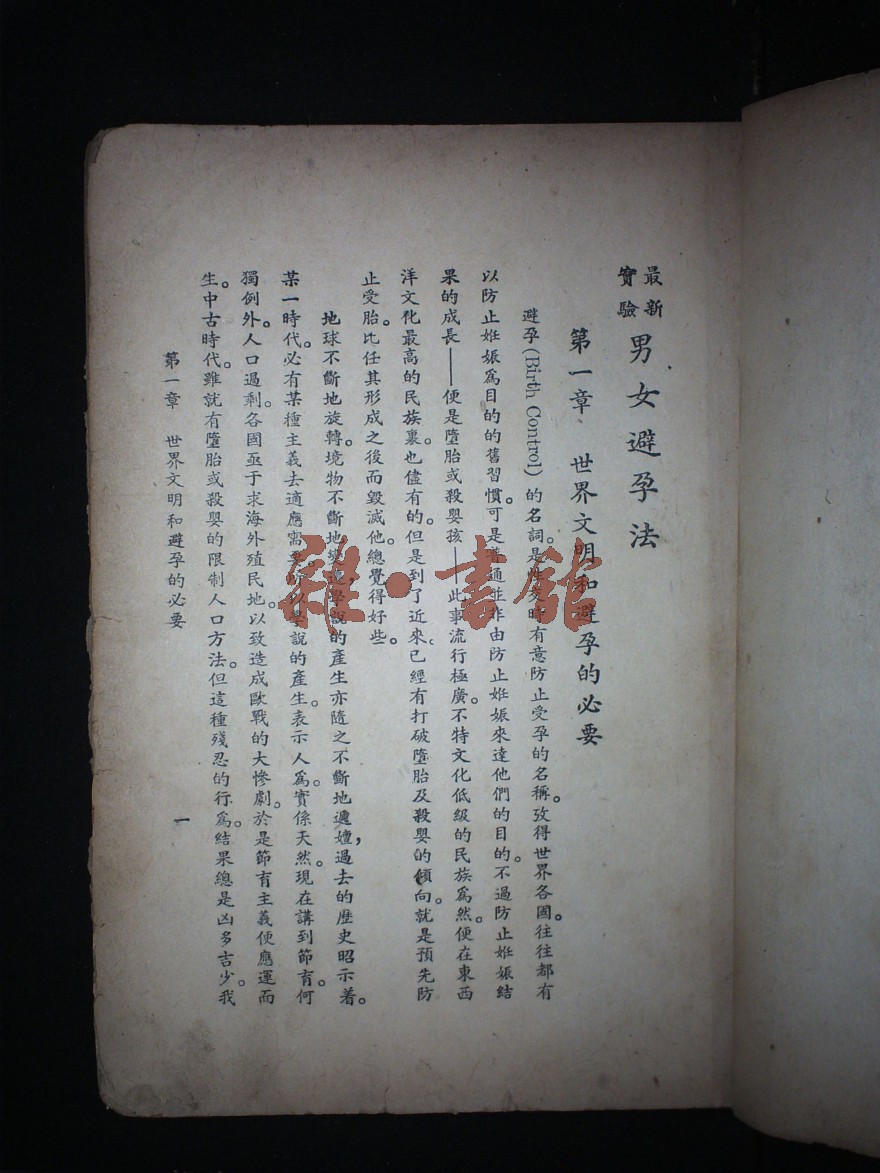 最新實驗 男女避孕法
第一章 世界文明和避孕的必要
避孕(Birth Control)的名詞。是性交時有意防止受孕的名稱。攷得世界各國。往往都有
以防止姙娠爲目的的舊習慣。可是普通並非由防止姙娠來達他們的目的。不過防止姙娠結
果的成長——便是墮胎或殺嬰孩——此事流行極廣。不特文化低級的民族爲然。便在東西
洋文化最高的民族裏。也儘有的。但是到了近來、已經有打破墮胎及殺嬰的傾向。就是預先防
止受胎。比任其形成之後而毀滅他。總覺得好些。
地球不斷地旋轉。境物不斷地變遷，學說的產生亦隨之不斷地遞嬗，過去的歷史昭示着。
某一時代。必有某種主義去適應需要。所以學說的產生。表示人爲。實係天然。現在講到節育。何
獨例外。人口過剩。各國亟于求海外殖民地。以致造成歐戰的大慘劇。於是節育主義便應運而
生。中古時代。雖就有墮胎或殺嬰的限制人口方法。但這種殘忍的行爲。結果總是凶多吉少。我
第一章 世界文明和避孕的必要
一
雜·書館